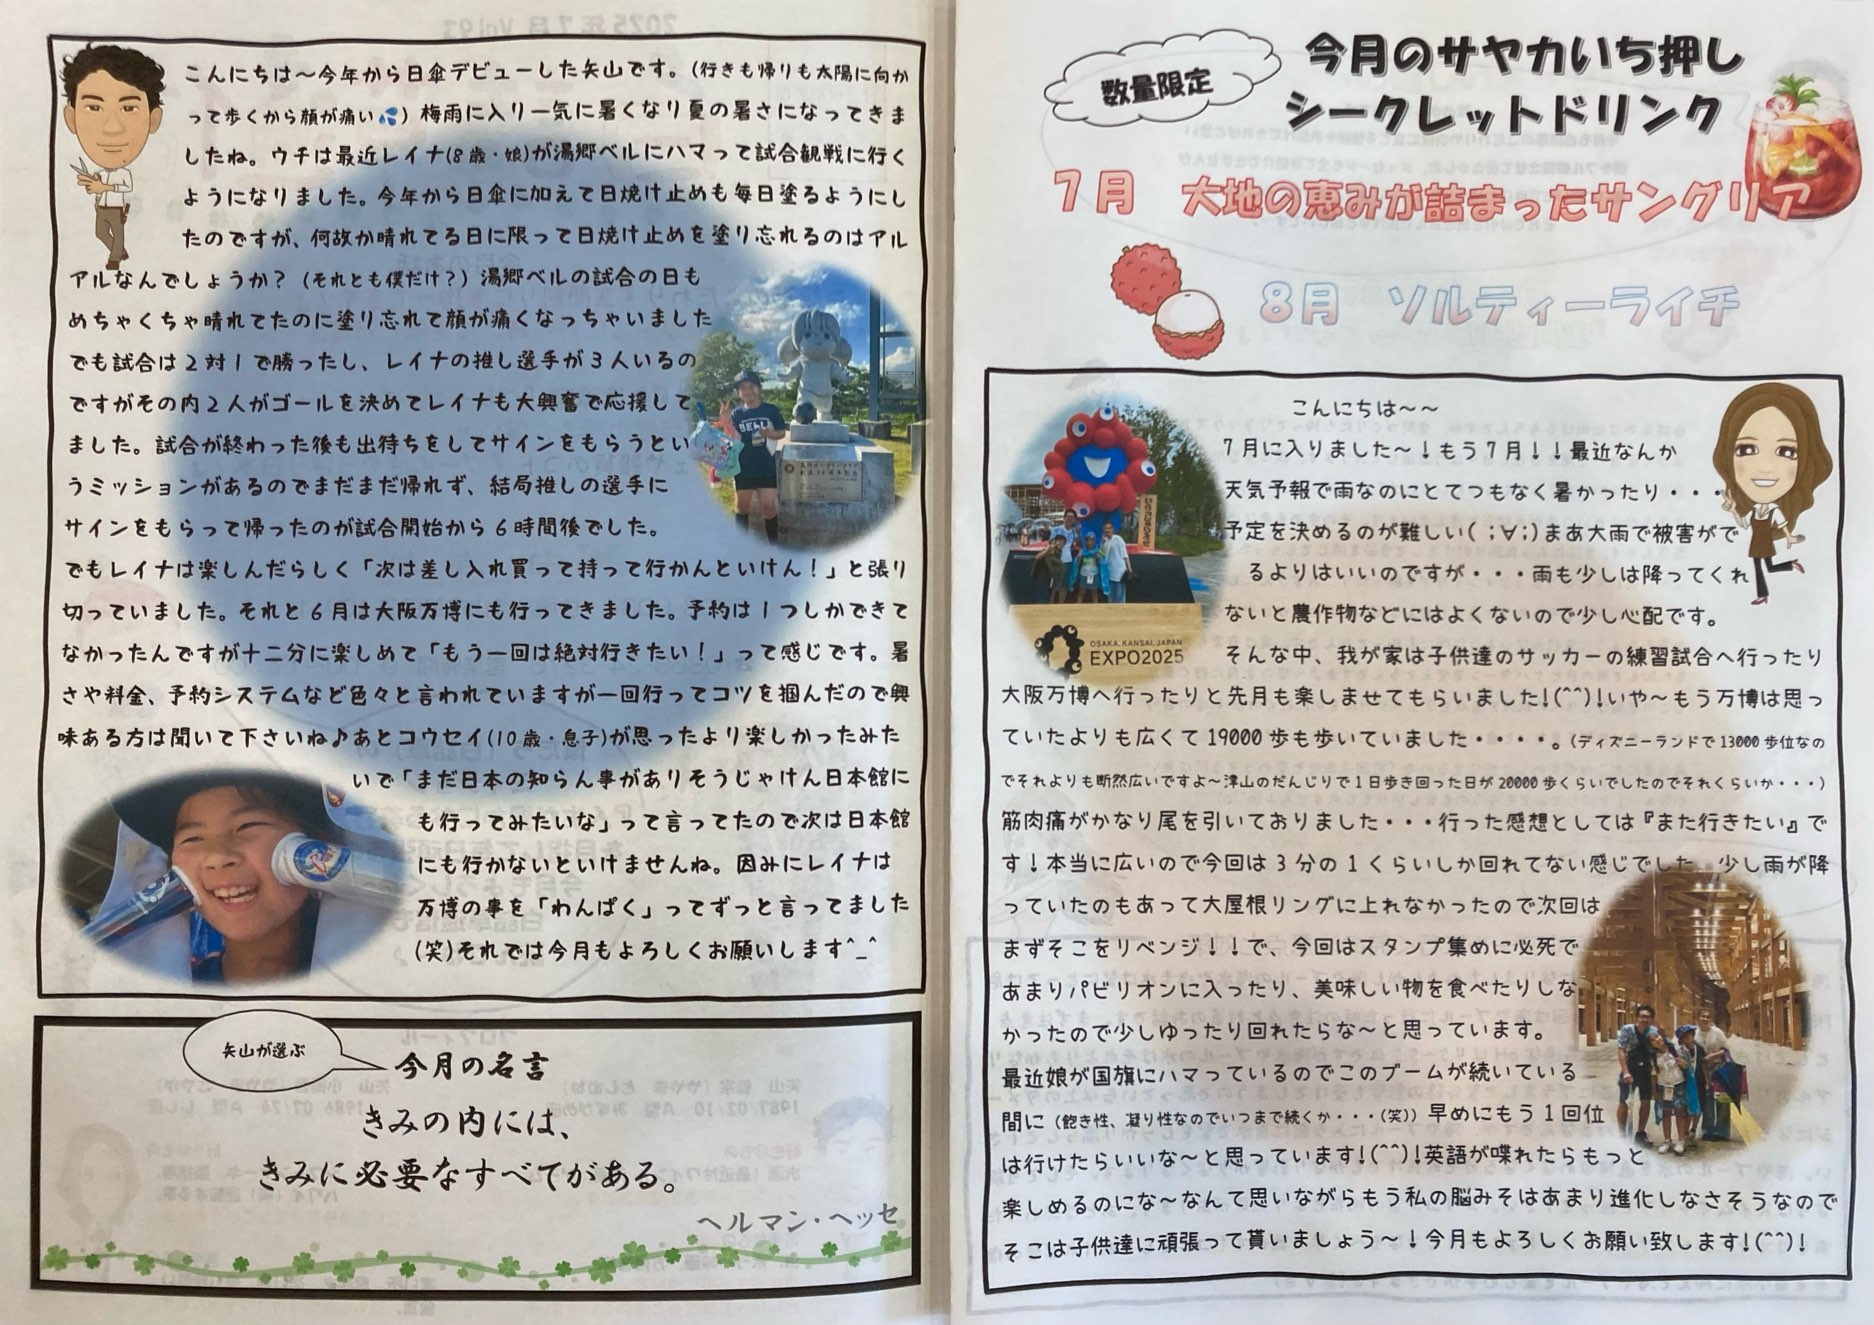 こんにちは～今年から日傘デビューした矢山です。(行きも帰りも太陽に向か
って歩くから顔が痛い💦) 梅雨に入り一気に暑くなり夏の暑さになってきま
したね。ウチは最近レイナ(8歳・娘)が湯郷ベルにハマって試合観戦に行く
ようになりました。今年から日傘に加えて日焼け止めも毎日塗るようにし
たのですが、何故か晴れてる日に限って日焼け止めを塗り忘れるのはアル
アルなんでしょうか？(それとも僕だけ？) 湯郷ベルの試合の日も
めちゃくちゃ晴れてたのに塗り忘れて顔が痛くなっちゃいました
でも試合は2対1で勝ったし、レイナの推し選手が3人いるの
ですがその内2人がゴールを決めてレイナも大興奮で応援して
ました。試合が終わった後も出待ちをしてサインをもらうとい
うミッションがあるのでまだまだ帰れず、結局推しの選手に
サインをもらって帰ったのが試合開始から6時間後でした。
でもレイナは楽しんだらしく「次は差し入れ買って持って行かんといけん！」と張り
切っていました。それと6月は大阪万博にも行ってきました。予約は1つしかできて
なかったんですが十二分に楽しめて「もう一回は絶対行きたい！」って感じです。暑
さや料金、予約システムなど色々と言われていますが一回行ってコツを掴んだので興
味ある方は聞いて下さいね♪あとコウセイ(10歳・息子)が思ったより楽しかったみた
いで「まだ日本の知らん事がありそうじゃけん日本館に
も行ってみたいな」って言ってたので次は日本館
にも行かないといけませんね。因みにレイナは
万博の事を「わんぱく」ってずっと言ってました
(笑)それでは今月もよろしくお願いします^_^
矢山が選ぶ
今月の名言
きみの内には、
きみに必要なすべてがある。
ヘルマン・ヘッセ
数量限定
今月のサヤカいち押し
シークレットドリンク
7月　大地の恵みが詰まったサングリア
8月　ソルティーライチ
OSAKA, KANSAI, JAPAN
EXPO2025
こんにちは～～
7月に入りました～！もう7月！！最近なんか
天気予報で雨なのにとてつもなく暑かったり・・・
予定を決めるのが難しい( ;∀;)まあ大雨で被害がで
るよりはいいのですが・・・雨も少しは降ってくれ
ないと農作物などにはよくないので少し心配です。
そんな中、我が家は子供達のサッカーの練習試合へ行ったり
大阪万博へ行ったりと先月も楽しませてもらいました!(^^)!いや～もう万博は思っ
ていたよりも広くて19000歩も歩いていました・・・・。(ディズニーランドで13000歩位なの
でそれよりも断然広いですよ～津山のだんじりで1日歩き回った日が20000歩くらいでしたのでそれくらいか・・・)
筋肉痛がかなり尾を引いておりました・・・行った感想としては『また行きたい』で
す！本当に広いので今回は3分の1くらいしか回れてない感じでした。少し雨が降
っていたのもあって大屋根リングに上れなかったので次回は
まずそこをリベンジ！！で、今回はスタンプ集めに必死で
あまりパビリオンに入ったり、美味しい物を食べたりしな
かったので少しゆったり回れたらな～と思っています。
最近娘が国旗にハマっているのでこのブームが続いている
間に (飽き性、凝り性なのでいつまで続くか・・・(笑)) 早めにもう1回位
は行けたらいいな～と思っています!(^^)!英語が喋れたらもっと
楽しめるのにな～なんて思いながらもう私の脳みそはあまり進化しなさそうなので
そこは子供達に頑張って貰いましょう～！今月もよろしくお願い致します!(^^)!